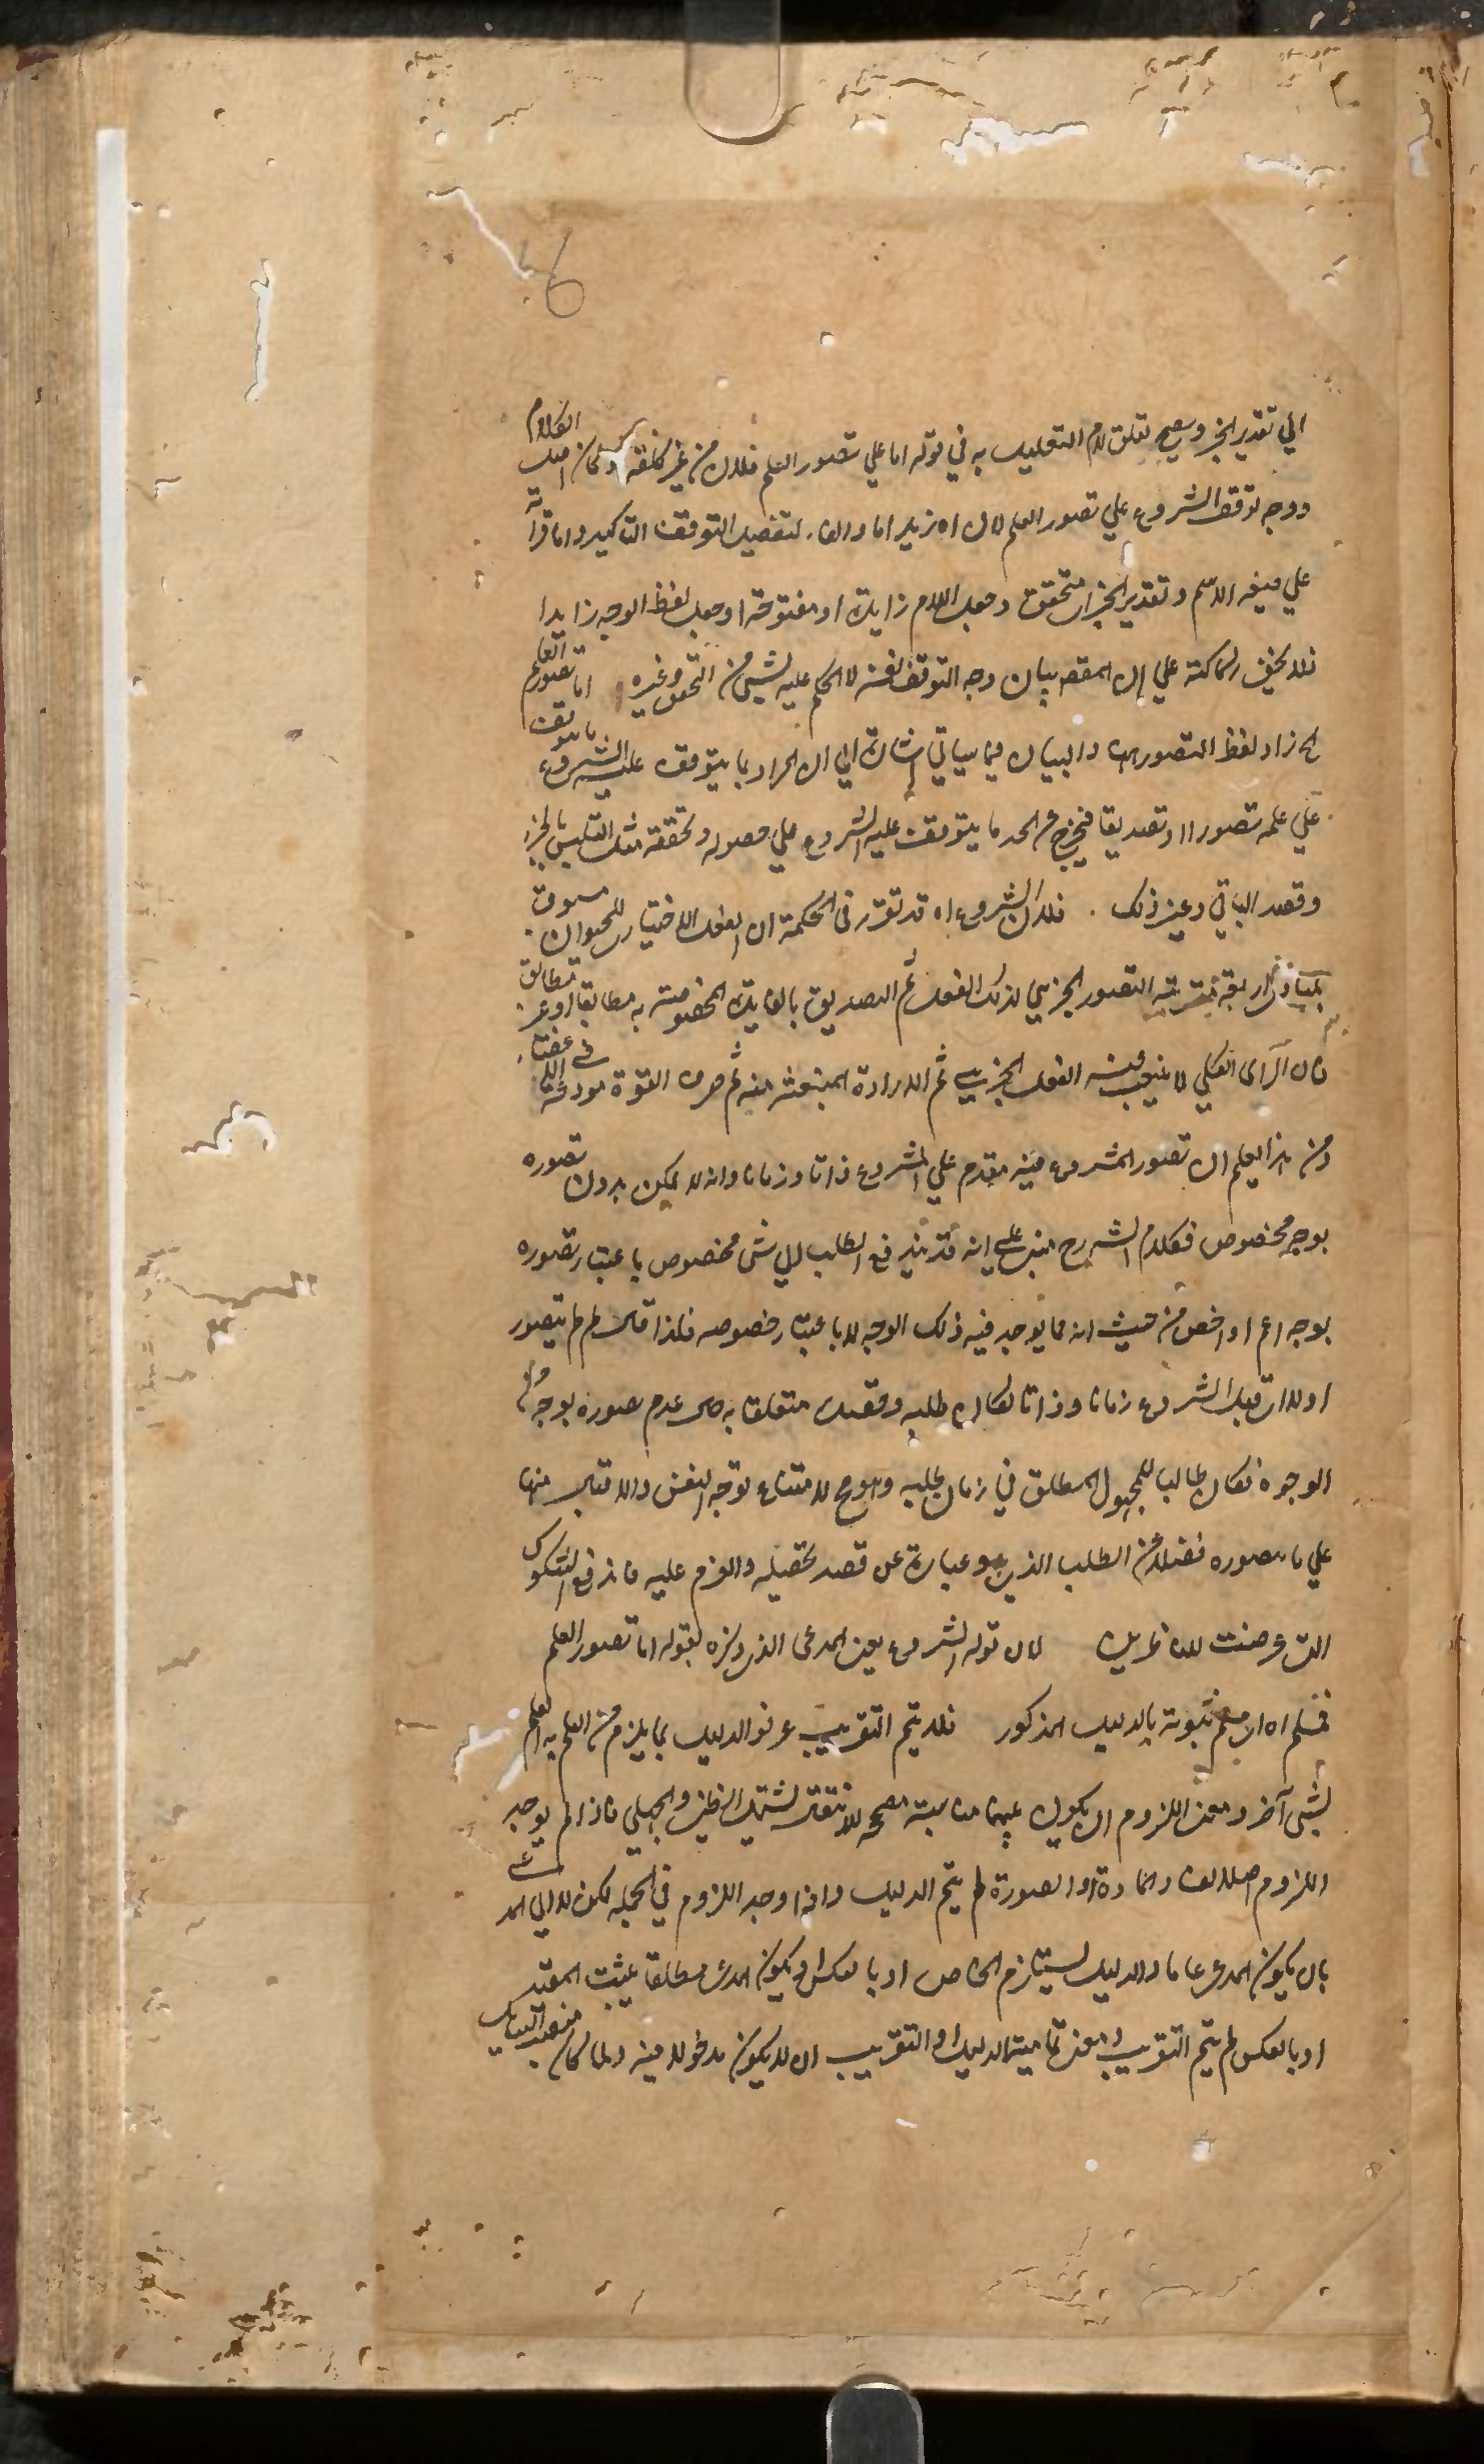 6
الي تقدير الخبر ويصح تعلق لام التعليل به في قوله اما علي تصور العلم فلان من غير كلفة وكان اصل الكلام
ووجه توقف الشروع علي تصور العلم لان اه زيد اما والفاء لتفصيل التوقف التاكيد واما قراءته
علي صيغه الاسم وتقدير الخبر ان متحقق وجعل اللام زايدة او مفتوحة او جعل لفظ الوجه زايدا
فلا يخفي ركاكته علي ان المقصد بيان وجه التوقف نفسه لا الحكم عليه بشيء من التحقق وغيره اما تصور العلم
الخ زاد لفظ التصور ههنا والبيان فيما سياتي اشارة الي ان المراد بما يتوقف عليه الشروع ما يتوقف
علي علمه تصورا او تصديقا فيخرج عن الحد ما يتوقف عليه الشروع علي حصوله وتحققه مثل التلبس بالجزء
وقصد الباقي وغير ذلك . فلان الشروع اه قد تقرر في الحكمة ان الفعل الاختياري للحيوان مسبوق
بمبادي اربعة مترتبة التصور الجزئي لذلك الفعل ثم التصديق بالفايدة المخصوصة به مطابقا او غير مطابق
فان الراي الكلي لا ينبعث منه الفعل الجزيي ثم الارادة المنبعثة منه ثم صرف القوة مودعة في الاعضاء
ومن هذا يعلم ان تصور المشروع فيه مقدم علي الشروع ذاتا وزمانا وانه لا يمكن بدون تصوره
بوجه مخصوص فكلام الشرح مبني علي انه قد يندفع الطلب الي شي مخصوص باعتبار تصوره
بوجه اعم او اخص من حيث انه مما يوجد فيه ذلك الوجه لا باعتبار خصوصه فلذا قال لم لم يتصور
اولا ان قبل الشروع زمانا وذاتا لكان طلبه وقصده متعلقا به حال عدم تصوره بوجه من
الوجوه فكان طالبا للمجهول المطلق في زمان طلبه وهو مح لامتناع توجه النفس والاقبال منها
علي ما تصوره فضلا من الطلب الذي هو عبارة عن قصد تحصيله والعزم عليه فاندفع الشكوك
التي عرضت للناظرين لان قوله الشروع يعني المدعي الذي ذكره بقوله اما تصور العلم
فمسلم اه ان مسلم ثبوته بالدليل المذكور فلا يتم التقريب عرفوا الدليل بما يلزم من العلم به العلم
بشيء آخر ومعني اللزوم ان يكون بينهما مناسبة مصححة للانتقال ليشتمل الظني والجدلي فاذا لم يوجد
اللزوم اصلا لفساد المادة او الصورة لم يتم الدليل واذا وجد اللزوم في الجملة لكن لا الي المدعي
بان يكون المدعي عاما والدليل يستلزم الخاص او بالعكس او يكون المدعي مطلقا يثبت المقيد
او بالعكس لم يتم التقريب فمعني تمامية الدليل او التقريب ان لا يكون مدخولا فيه ولما كان منصب السايل